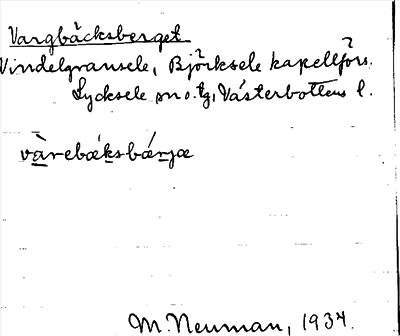 Vargbäcksberget
Vindelgransele, Björksele kapellförs.
Lycksele sn o. tg, Västerbottens l.
vàrebæksbǽrjæ
M. Neuman, 1934.